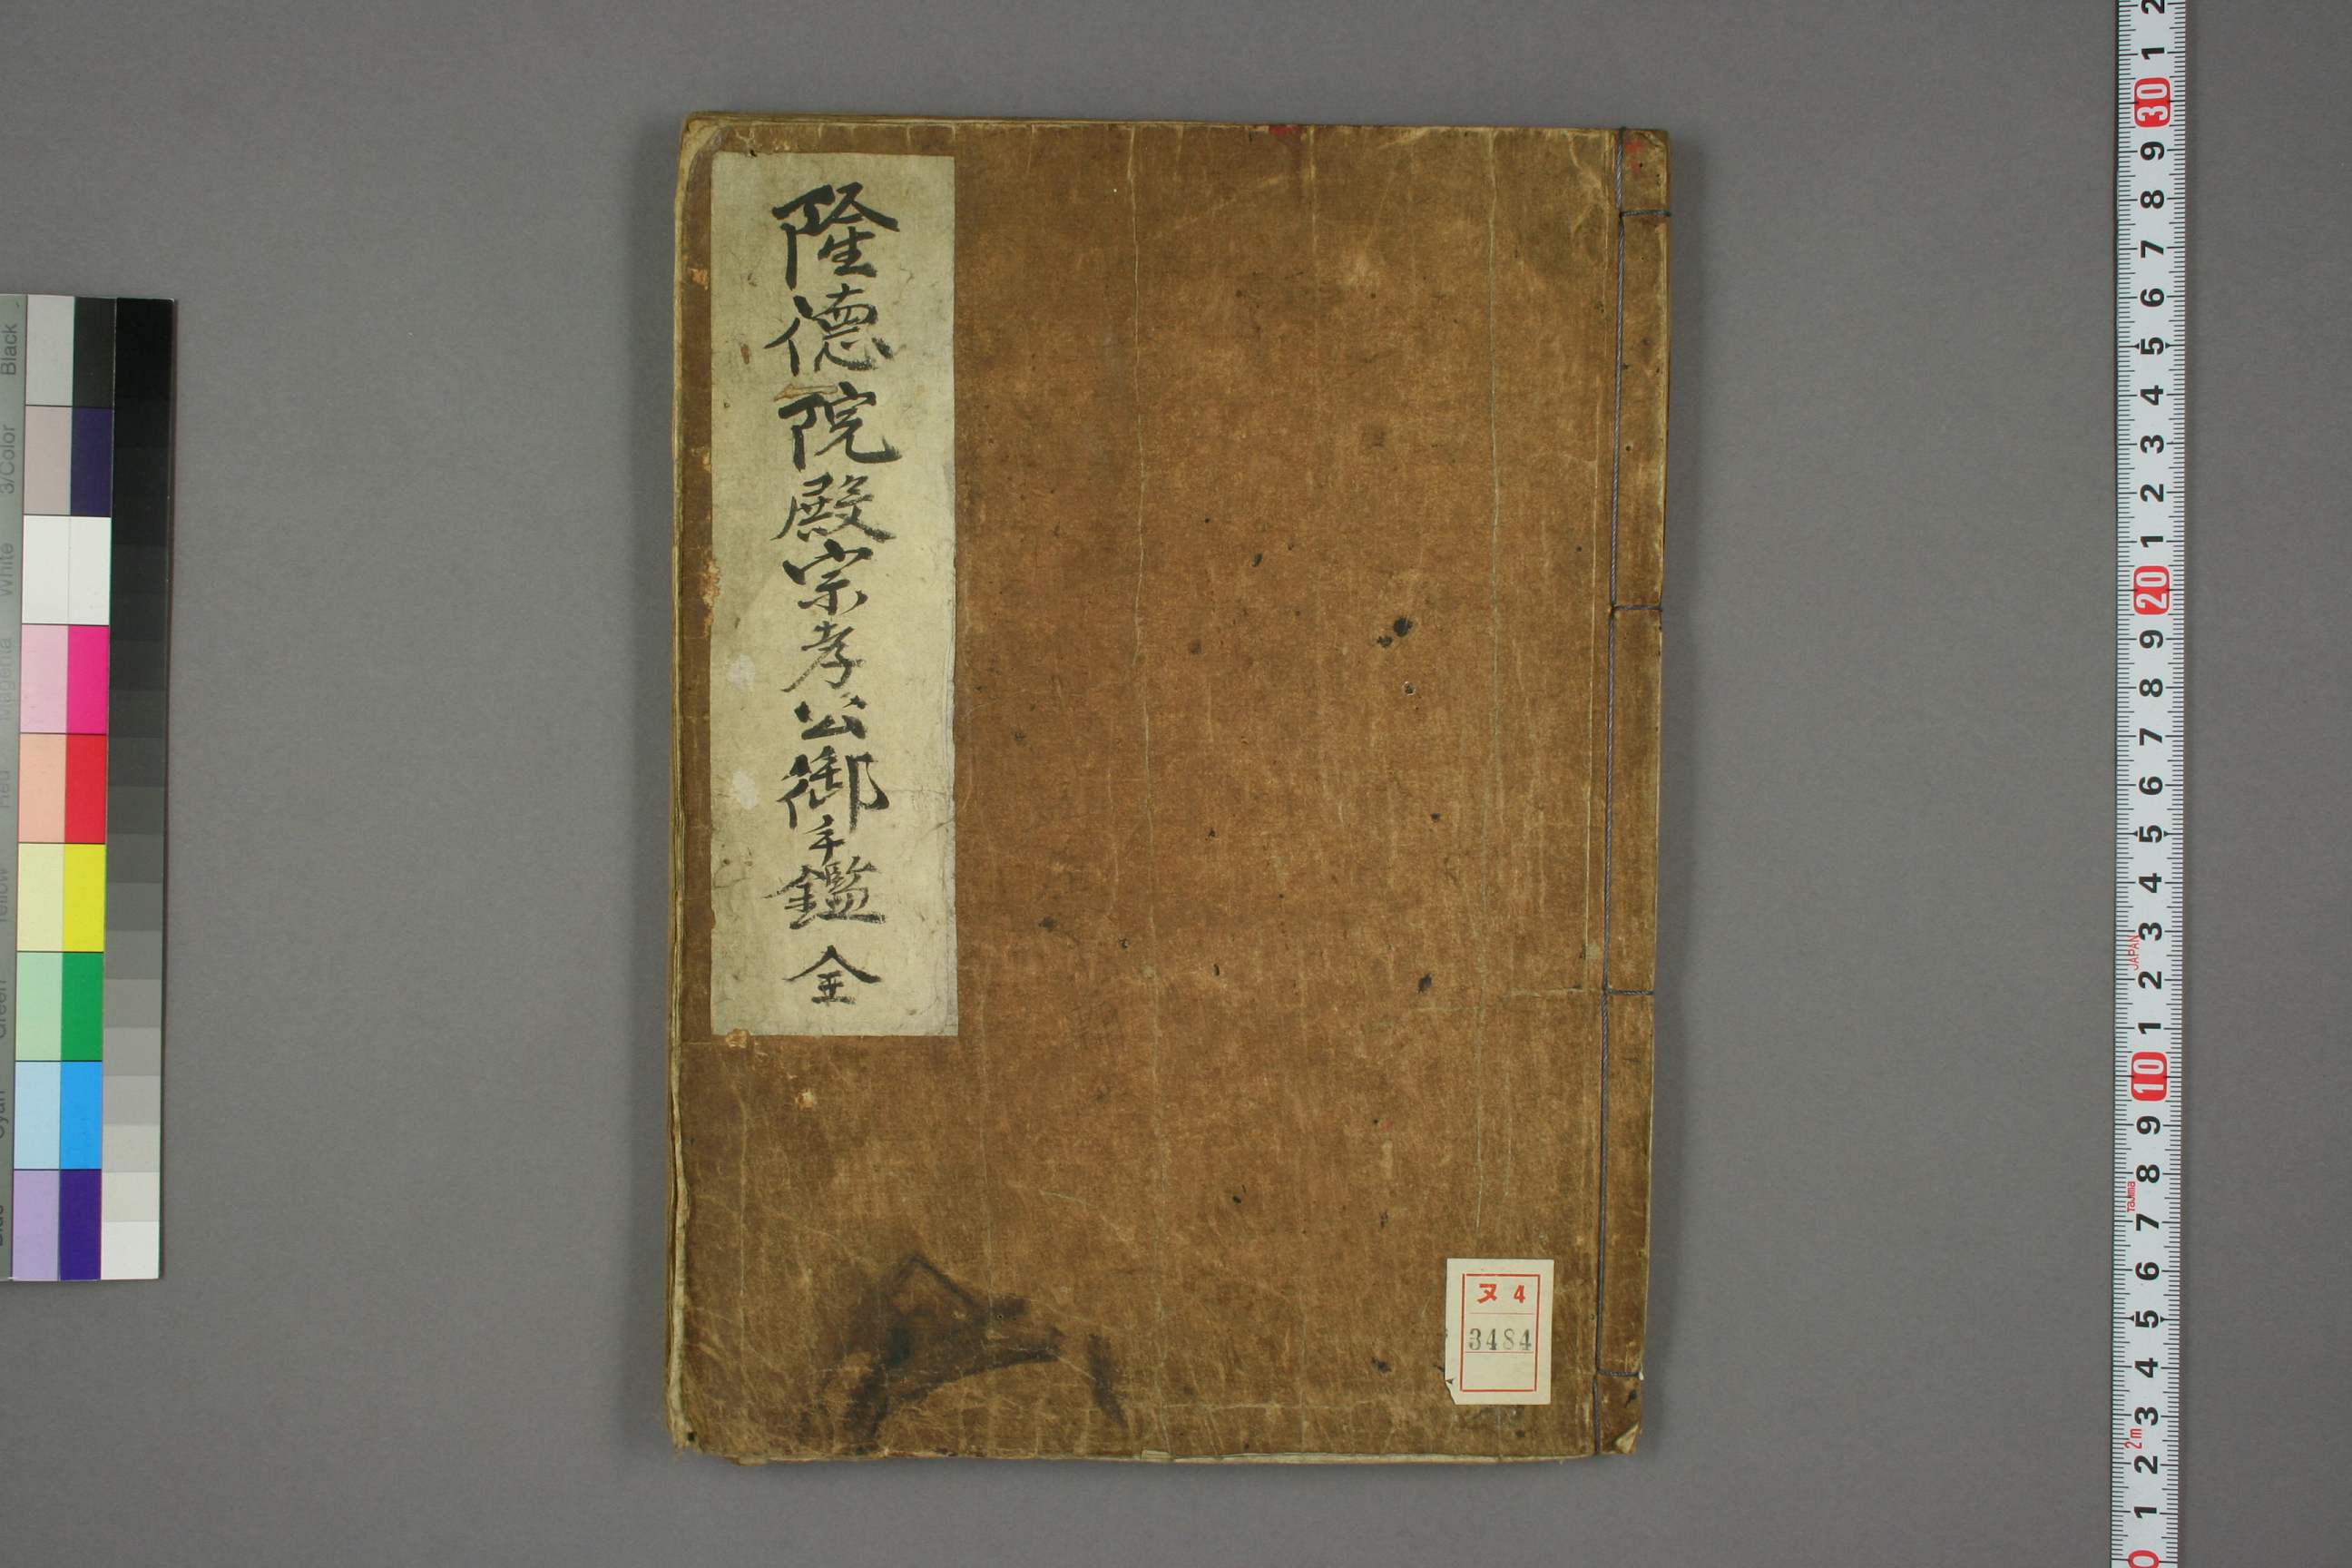 隆德院殿宗孝公御手鑑 全
ヌ 4
3484
Black
3/Color
White
Magenta
Red
Yellow
Green
Cyan
2
1
30
9
8
7
6
5
4
3
2
1
20
9
8
7
6
5
4
3
JAPAN
2
1
10
9
8
Tajima
7
6
5
4
3
2m
2
1
0